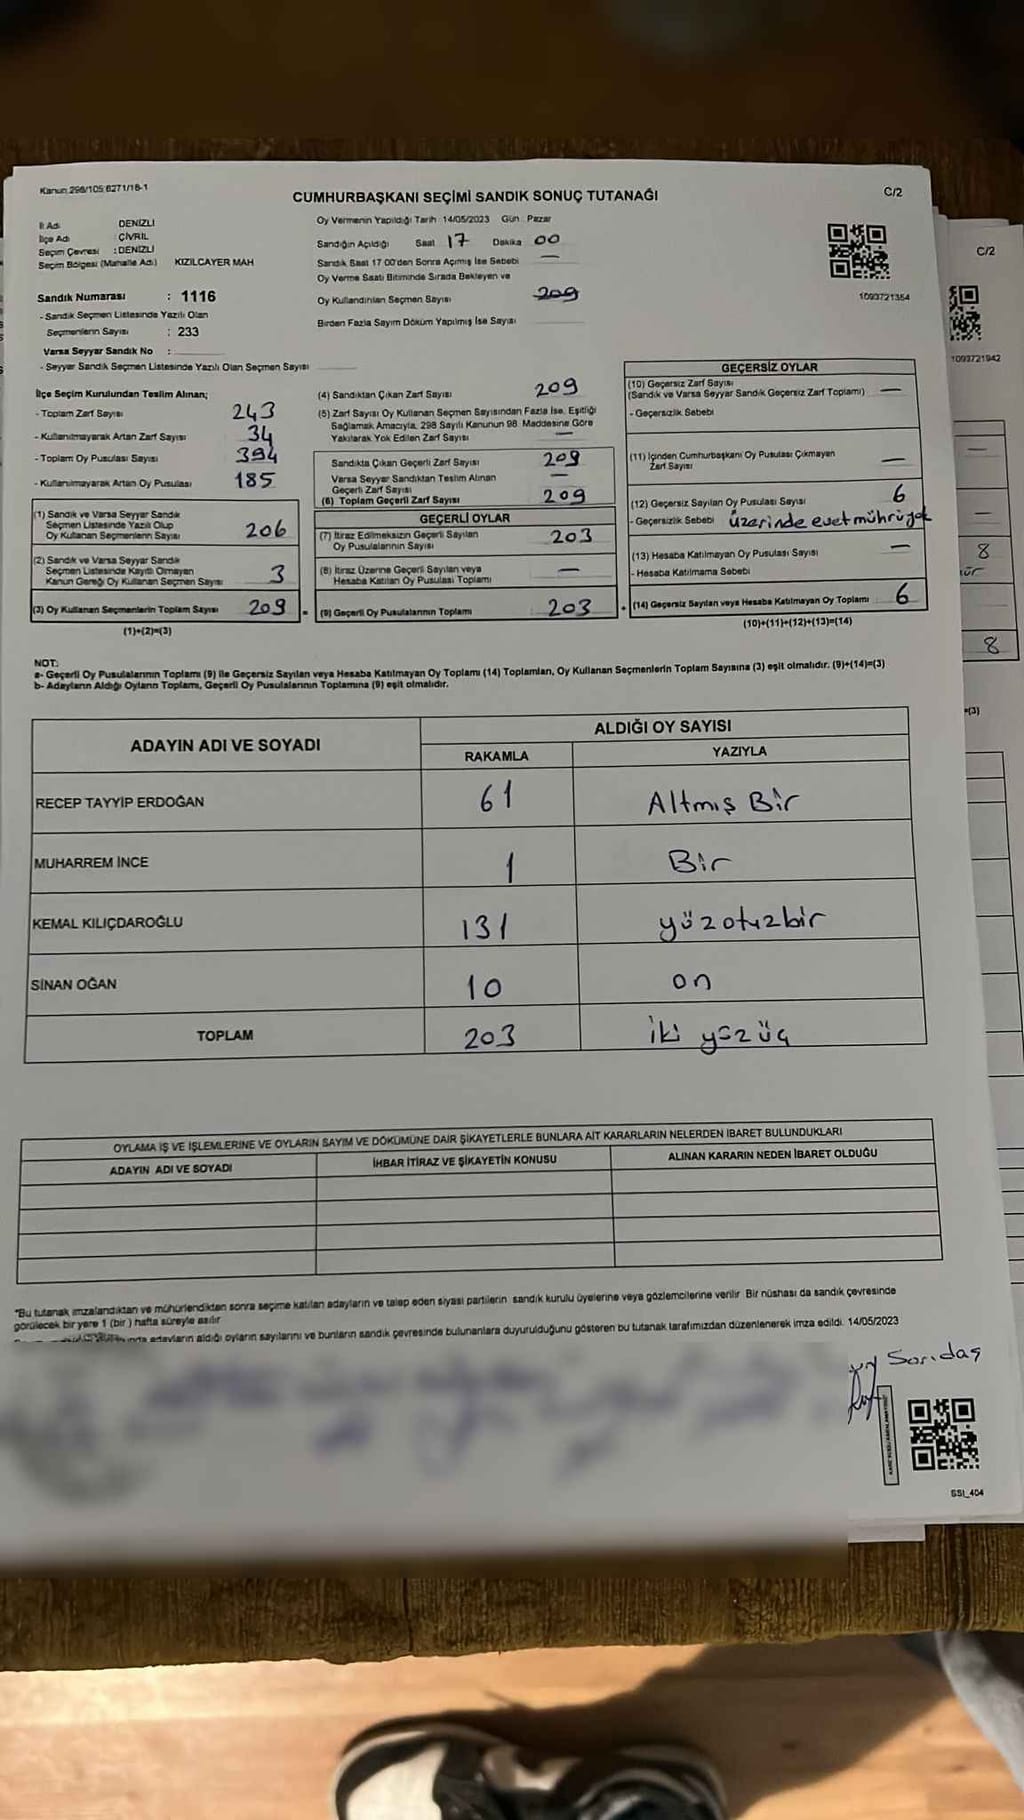 Kanun:298/105;6271/18-1
CUMHURBAŞKANI SEÇİMİ SANDIK SONUÇ TUTANAĞI
C/2
İl Adı : DENİZLİ
İlçe Adı : ÇİVRİL
Seçim Çevresi : DENİZLİ
Seçim Bölgesi (Mahalle Adı) KIZILCAYER MAH
Sandık Numarası : 1116
- Sandık Seçmen Listesinde Yazılı Olan
Seçmenlerin Sayısı : 233
Varsa Seyyar Sandık No :
- Seyyar Sandık Seçmen Listesinde Yazılı Olan Seçmen Sayısı
Oy Vermenin Yapıldığı Tarih : 14/05/2023 Gün : Pazar
Sandığın Açıldığı Saat 17 Dakika 00
Sandık Saat 17:00'den Sonra Açılmış İse Sebebi —
Oy Verme Saati Bitiminde Sırada Bekleyen ve
Oy Kullandırılan Seçmen Sayısı 209
Birden Fazla Sayım Döküm Yapılmış İse Sayısı
1093721354
İlçe Seçim Kurulundan Teslim Alınan;
- Toplam Zarf Sayısı 243
- Kullanılmayarak Artan Zarf Sayısı 34
- Toplam Oy Pusulası Sayısı 394
- Kullanılmayarak Artan Oy Pusulası 185
(1) Sandık ve Varsa Seyyar Sandık
Seçmen Listesinde Yazılı Olup
Oy Kullanan Seçmenlerin Sayısı 206
(2) Sandık ve Varsa Seyyar Sandık
Seçmen Listesinde Kayıtlı Olmayan
Kanun Gereği Oy Kullanan Seçmen Sayısı 3
(3) Oy Kullanan Seçmenlerin Toplam Sayısı 209
(1)+(2)=(3)
(4) Sandıktan Çıkan Zarf Sayısı 209
(5) Zarf Sayısı Oy Kullanan Seçmen Sayısından Fazla İse, Eşitliği
Sağlamak Amacıyla, 298 Sayılı Kanunun 98. Maddesine Göre
Yakılarak Yok Edilen Zarf Sayısı —
Sandıkta Çıkan Geçerli Zarf Sayısı 209
Varsa Seyyar Sandıktan Teslim Alınan
Geçerli Zarf Sayısı —
(6) Toplam Geçerli Zarf Sayısı 209
GEÇERLİ OYLAR
(7) İtiraz Edilmeksizin Geçerli Sayılan
Oy Pusulalarının Sayısı 203
(8) İtiraz Üzerine Geçerli Sayılan veya
Hesaba Katılan Oy Pusulası Toplamı —
(9) Geçerli Oy Pusulalarının Toplamı 203
GEÇERSİZ OYLAR
(10) Geçersiz Zarf Sayısı
(Sandık ve Varsa Seyyar Sandık Geçersiz Zarf Toplamı) —
- Geçersizlik Sebebi
(11) İçinden Cumhurbaşkanı Oy Pusulası Çıkmayan
Zarf Sayısı —
(12) Geçersiz Sayılan Oy Pusulası Sayısı 6
- Geçersizlik Sebebi üzerinde evet mührü yok
(13) Hesaba Katılmayan Oy Pusulası Sayısı —
- Hesaba Katılmama Sebebi
(14) Geçersiz Sayılan veya Hesaba Katılmayan Oy Toplamı 6
(10)+(11)+(12)+(13)=(14)
NOT:
a- Geçerli Oy Pusulalarının Toplamı (9) ile Geçersiz Sayılan veya Hesaba Katılmayan Oy Toplamı (14) Toplamları, Oy Kullanan Seçmenlerin Toplam Sayısına (3) eşit olmalıdır. (9)+(14)=(3)
b- Adayların Aldığı Oyların Toplamı, Geçerli Oy Pusulalarının Toplamına (9) eşit olmalıdır.
ADAYIN ADI VE SOYADI
ALDIĞI OY SAYISI
RAKAMLA YAZIYLA
RECEP TAYYİP ERDOĞAN 61 Altmış Bir
MUHARREM İNCE 1 Bir
KEMAL KILIÇDAROĞLU 131 yüzotuzbir
SİNAN OĞAN 10 on
TOPLAM 203 iki yüzüç
OYLAMA İŞ VE İŞLEMLERİNE VE OYLARIN SAYIM VE DÖKÜMÜNE DAİR ŞİKAYETLERLE BUNLARA AİT KARARLARIN NELERDEN İBARET BULUNDUKLARI
ADAYIN ADI VE SOYADI İHBAR İTİRAZ VE ŞİKAYETİN KONUSU ALINAN KARARIN NEDEN İBARET OLDUĞU
"Bu tutanak imzalandıktan ve mühürlendikten sonra seçime katılan adayların ve talep eden siyasi partilerin sandık kurulu üyelerine veya gözlemcilerine verilir. Bir nüshası da sandık çevresinde
görülecek bir yere 1 (bir) hafta süreyle asılır.
adayların aldığı oyların sayılarını ve bunların sandık çevresinde bulunanlara duyurulduğunu gösteren bu tutanak tarafımızdan düzenlenerek imza edildi. 14/05/2023
Sarıdaş
SSI_404
C/2
1093721942
8
8
=(3)